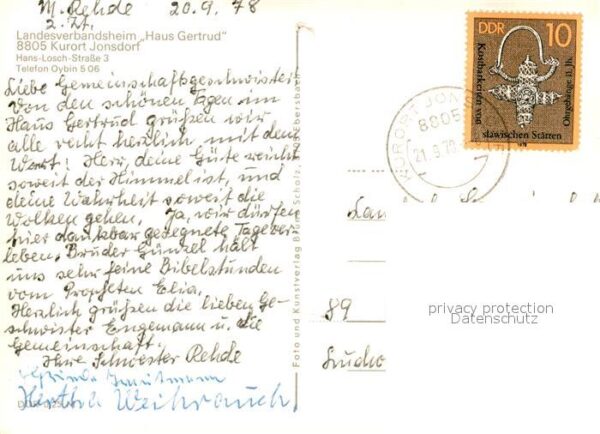 M. Rehde 20.9.78
z. Zt.
Landesverbandsheim „Haus Gertrud“
8805 Kurort Jonsdorf
Hans-Losch-Straße 3
Telefon Oybin 5 06
Liebe Gemeinschaftsgeschwister
Von den schönen Tagen im
Haus Gertrud grüßen wir
alle recht herzlich mit dem
Wort: Herr, deine Güte reicht
soweit der Himmel ist, und
deine Wahrheit soweit die
Wolken gehen. Ja, wir dürfen
hier dankbar gesegnete Tage ver-
leben. Bruder Günzel hält
uns sehr feine Bibelstunden
vom Propheten Elia.
Herzlich grüßen die lieben Ge-
schwister Engemann u. die
Gemeinschaft.
Ihre Schwester Rehde
Hertha Weihrauch.
Foto und Kunstverlag
DDR 10
Kostbarkeiten von
slawischen Stätten
Ohrgehänge 11. Jh.
1978
KURORT JONSDORF
8805
21.9.78
89
privacy protection
Datenschutz